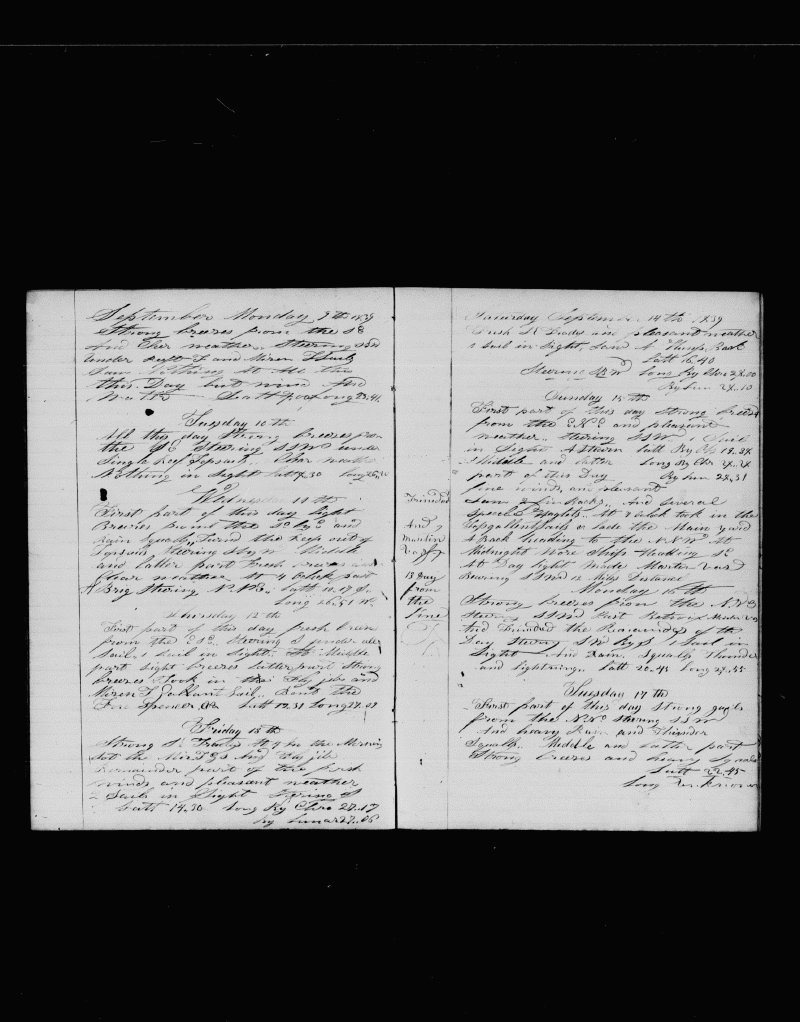 September Monday 9th 1839
Strong breezes from the SE
And Clear weather Steering SSW
under
Saw Nothing at all this
this Day but wind And
Water Latt Long 23.41
Tuesday 10th
All this day Strong breezes from
the SE Steering SSW under
Single Reef Topsails. Clear weather
Nothing in Sight Latt Long
Wednesday 11th
First part of this day light
Breezes from the SE by E and
rain Squalls Turned the Reefs out of
Topsails Steering S by W Middle
and latter part Fresh breezes and
Clear weather At 4 Oclock past
A Brig Steering N.N.E. Latt 10.17 S
Long 26.51 W
Thursday 12th
First part of this day fresh breezes
from the ESE Steering S under all
Sail 1 Sail in Sight. The Middle
part light breezes latter part Strong
breezes Took in the Fly jib and
Mizen T Gallant Sail. Bent the
Fore Spencer Latt 12.31 Long 27.02
Friday 13th
Strong SE Trades At 4 In the Morning
Sett the Miz TGS And Fly jib
Remainder part of the fresh
winds and pleasant weather
2 Sails in Sight Steering S
Latt 14.30 Long By Chro 27.17
By Lunar 27.06
Trindad
And
Martin
Vass
13 Day
from
the
Line
Saturday September 14th 1839
Fresh SE Trades and pleasant weather
1 Sail in Sight, Saw A
Latt 16.40
Steering SSW Long By Chro 28.00
By Lun 28.10
Sunday 15th
First part of this day Strong breezes
from the ENE and pleasant
weather. Steering SSW 1 Sail
in Sight Astern Latt By Obs
Middle and latter Long By Chr
part of this Day By Lun 28.31
fine winds and pleasant
Saw 2 And several
At 8 oclock took in the
Topgallantsails Main yard
Aback heading to the NNW At
Midnight Wore Ship Heading S
At Day light made Martin Vass
Bearing SSW 12 Miles Distance
Monday 16th
Strong breezes from the NNE
Steering SSW Past Between Martin Vass
And Trindad the Remainder of the
Day Steering SW By S 1 Sail in
Sight And Rain Squalls Thunder
and lightning. Latt 20.45 Long 29.55
Tuesday 17th
First part of this day Strong gales
from the NNE Steering SSW
And heavy Rain and Thunder
Squalls. Middle and latter part
Strong breezes and heavy Squalls
Latt 22.45
Long Unknown